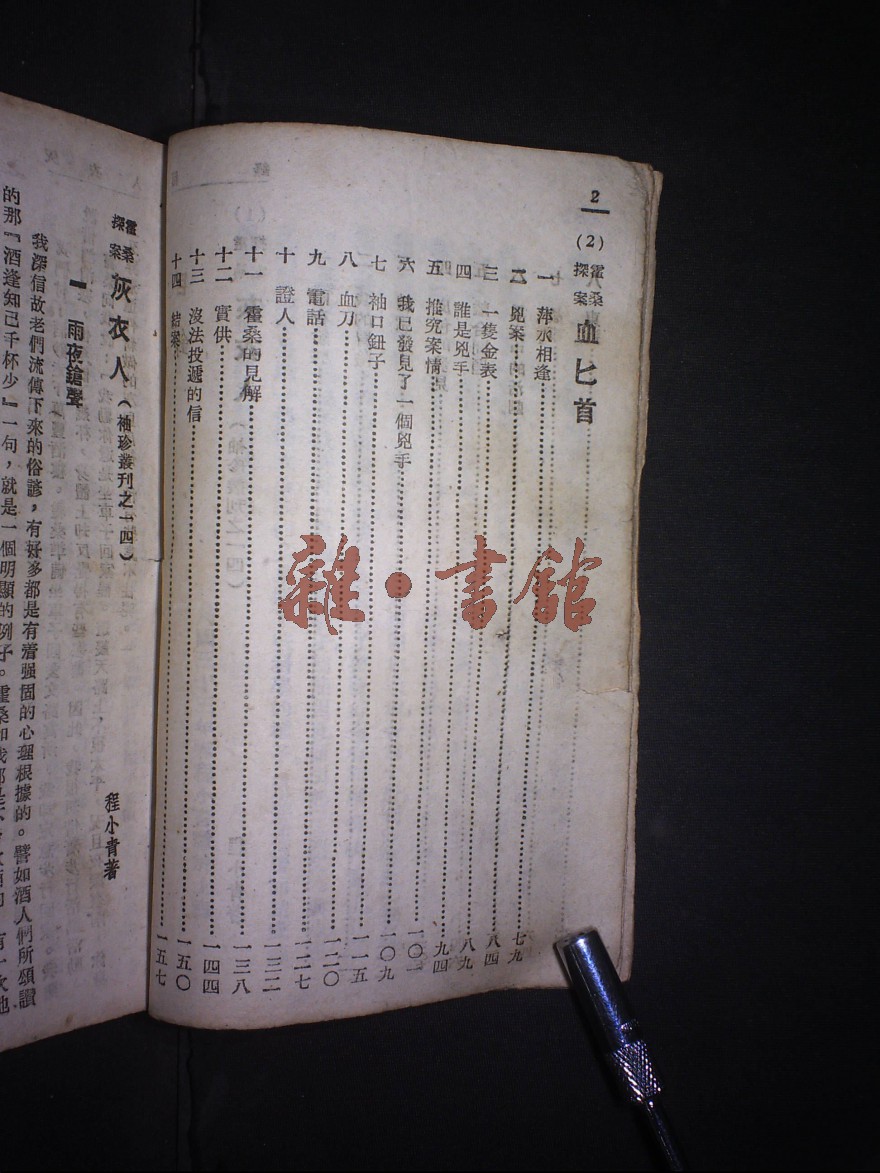 2
(2) 霍桑探案 血匕首
一 萍水相逢……七九
二 兇案……八四
三 一隻金表……八九
四 誰是兇手……九四
五 推究案情……一〇一
六 我已發見了一個兇手……一〇九
七 袖口鈕子……一一五
八 血刀……一二〇
九 電話……一二七
十 證人……一三二
十一 霍桑的見解……一三八
十二 實供……一四四
十三 沒法投遞的信……一五〇
十四 結案……一五七
霍桑探案 灰衣人（袖珍叢刊之一四） 程小青著
一 雨夜鎗聲
我深信故老們流傳下來的俗諺，有好多都是有着强固的心理根據的。譬如酒人們所頌讚
的那『酒逢知己千杯少』一句，就是一個明顯的例子。霍桑和我都是
雜·書館